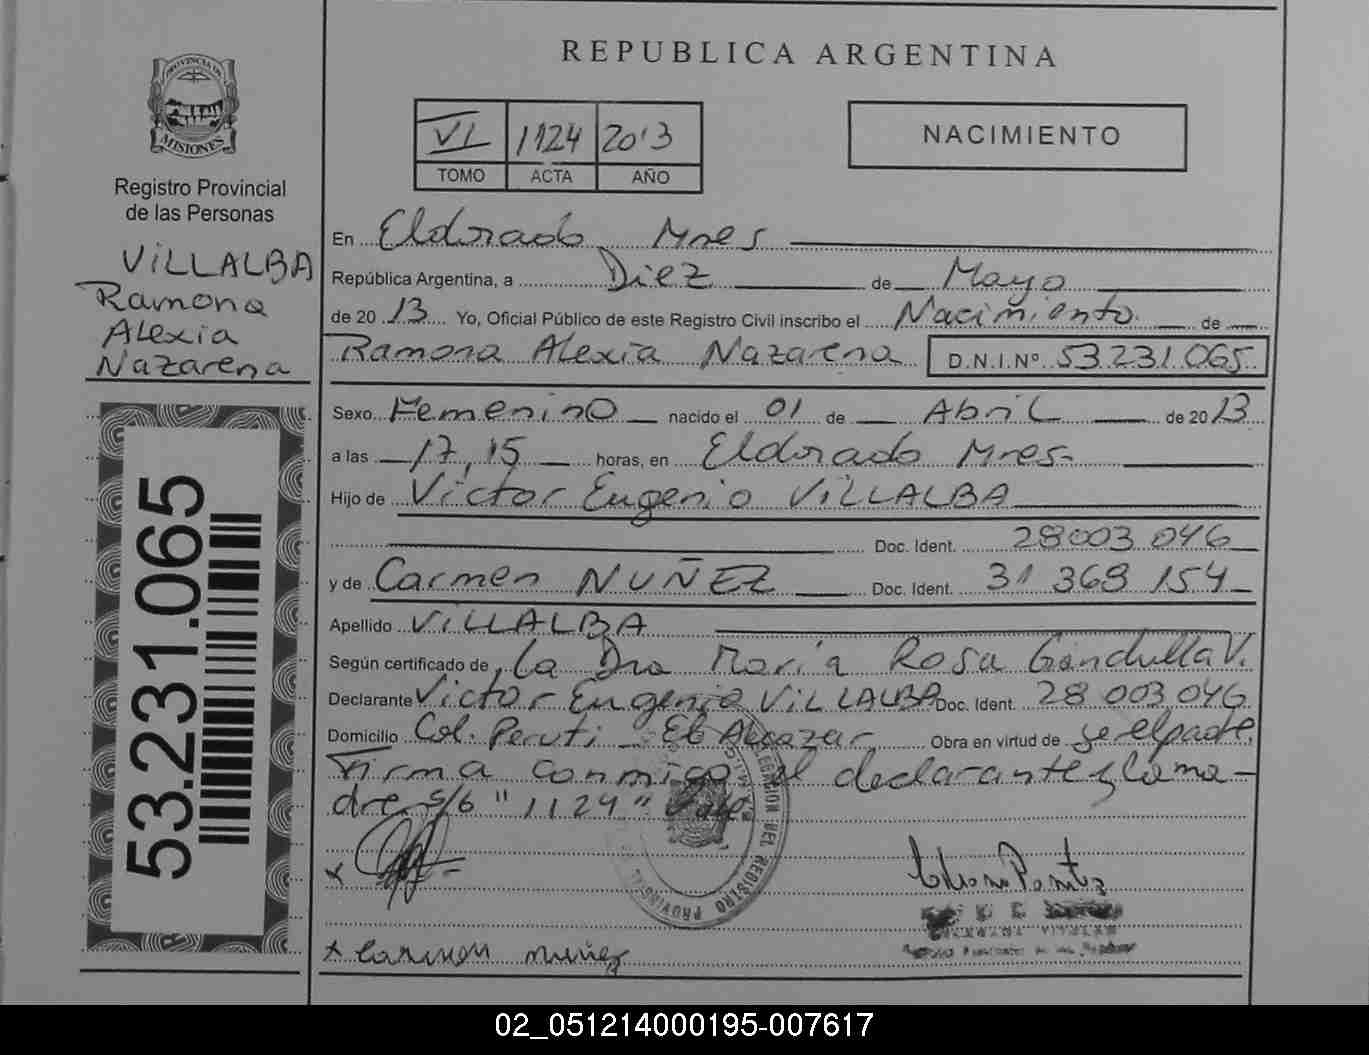 REPUBLICA ARGENTINA
PROVINCIA DE
MISIONES
Registro Provincial
de las Personas
VILLALBA
Ramona
Alexia
Nazarena
53.231.065
VI 1124 2013
TOMO ACTA AÑO
NACIMIENTO
En Eldorado Mnes
República Argentina, a Diez de Mayo
de 20 13 Yo, Oficial Público de este Registro Civil inscribo el Nacimiento de
Ramona Alexia Nazarena D.N.I.Nº 53.231.065
Sexo Femenino nacido el 01 de Abril de 20 13
a las 17,15 horas, en Eldorado Mnes
Hijo de Victor Eugenio VILLALBA
Doc. Ident. 28003 046
y de Carmen NUÑEZ Doc. Ident. 31 368 154
Apellido VILLALBA
Según certificado de La Dra María Rosa V.
Declarante Victor Eugenio VILLALBA Doc. Ident. 28 003 046
Domicilio Col. Peruti El Alcazar Obra en virtud de ser el padre.
Firma conmigo el declarante y la ma-
dre s/6 "1124" Vale
DELEGACION DEL REGISTRO PROVINCIAL
x
x Carmen Nuñez
02_051214000195-007617